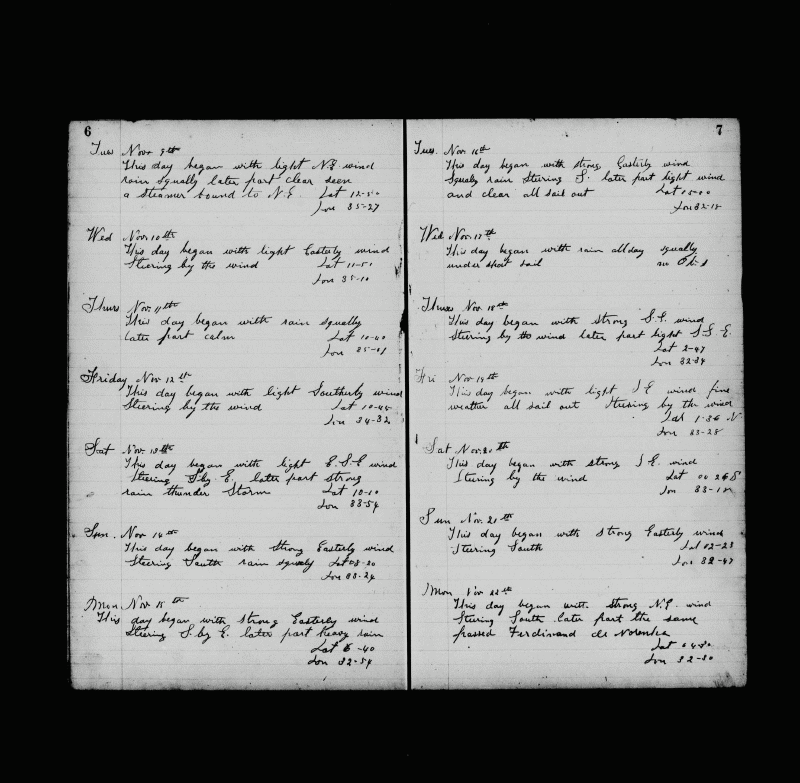 6
Tues Nov. 9th
This day began with light N.E. wind
rain squally later part clear seen
a steamer bound to N.E. Lat 12-50
Lon 35-27
Wed Nov. 10th
This day began with light Easterly wind
Steering by the wind Lat 11-51
Lon 35-10
Thurs Nov. 11th
This day began with rain squally
later part calm Lat 10-40
Lon 35-01
Friday Nov 12th
This day began with light Southerly wind
Steering by the wind Lat 10-45
Lon 34-32
Sat Nov. 13th
This day began with light E.S.E wind
Steering S by E. later part strong
rain thunder Storm Lat 10-10
Lon 33-54
Sun. Nov 14th
This day began with strong Easterly wind
Steering South rain squaly Lat 08-20
Lon 33-24
Mon Nov 15th
This day began with strong Easterly wind
Steering S. by E. later part heavy rain
Lat 6-40
Lon 32-54
7
Tues. Nov. 16th
This day began with strong Easterly wind
Squaly rain Steering S. later part light wind
and clear all sail out Lat
Lon 32-18
Wed Nov. 17th
This day began with rain all day squally
under short sail no
Thurs Nov. 18th
This day began with strong S.E. wind
Steering by the wind later part light S.S.E.
Lat 2-47
Lon 32-34
Fri Nov 19th
This day began with light S E wind fine
weather all sail out Steering by the wind
Lat 1-36 N
Lon 33-28
Sat Nov. 20th
This day began with strong S E. wind
Steering by the wind Lat 00 26 S
Lon 33-18
Sun Nov. 21th
This day began with strong Easterly wind
Steering South Lat 02-23
Lon 32-47
Mon Nov 22th
This day began with strong N.E. wind
Steering South later part the same
passed Ferdinand de Noronha
Lat
Lon 32-30